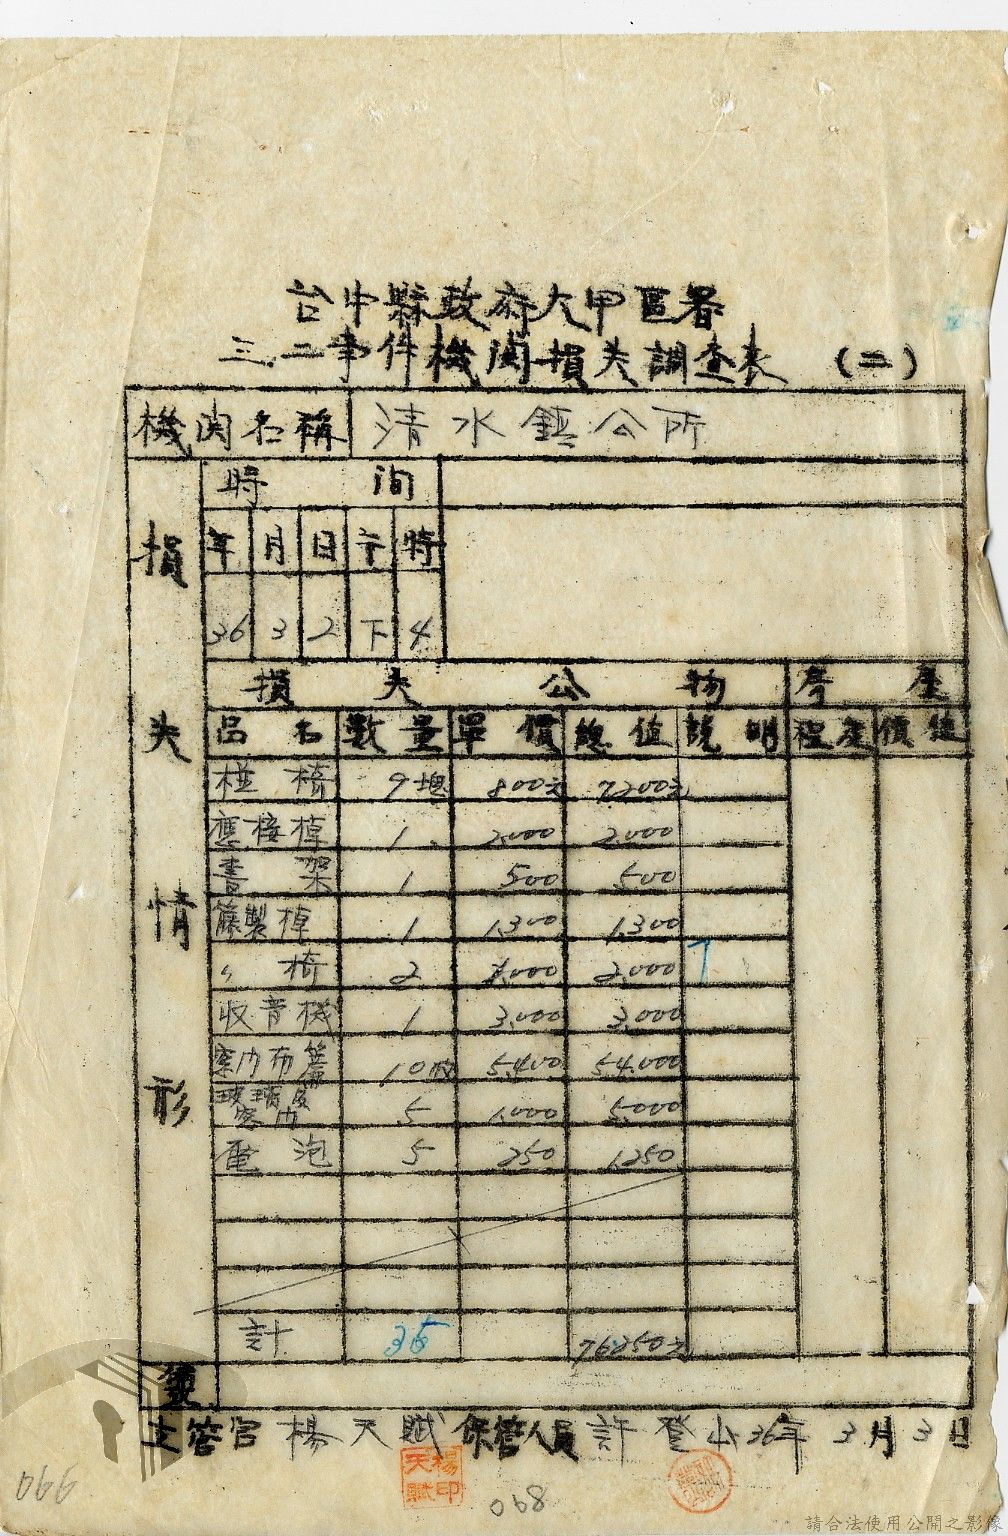 台中縣政府大甲區署
三.二事件機関損失調查表 (二)
機関名稱 清水鎮公所
損失情形
時間
年 月 日 午 時
36 3 2 下 4
損失公物 房屋
品名 數量 單價 總值 說明 程度 價值
椪椅 9塊 800元 7200元
應接棹 1 2.000 2.000
書架 1 500 500
籐製棹 1 1.300 1.300
〃椅 2 1.000 2.000
收音機 1 3.000 3.000
布簾 10枚 5.400 54.000
玻璃 5 1.000 5.000
電泡 5 250 1.250
計 35 76250元
主管官 楊天賦 保管人員 許登山 36年3月3日
楊天賦印
066
068
請合法使用公開之影像